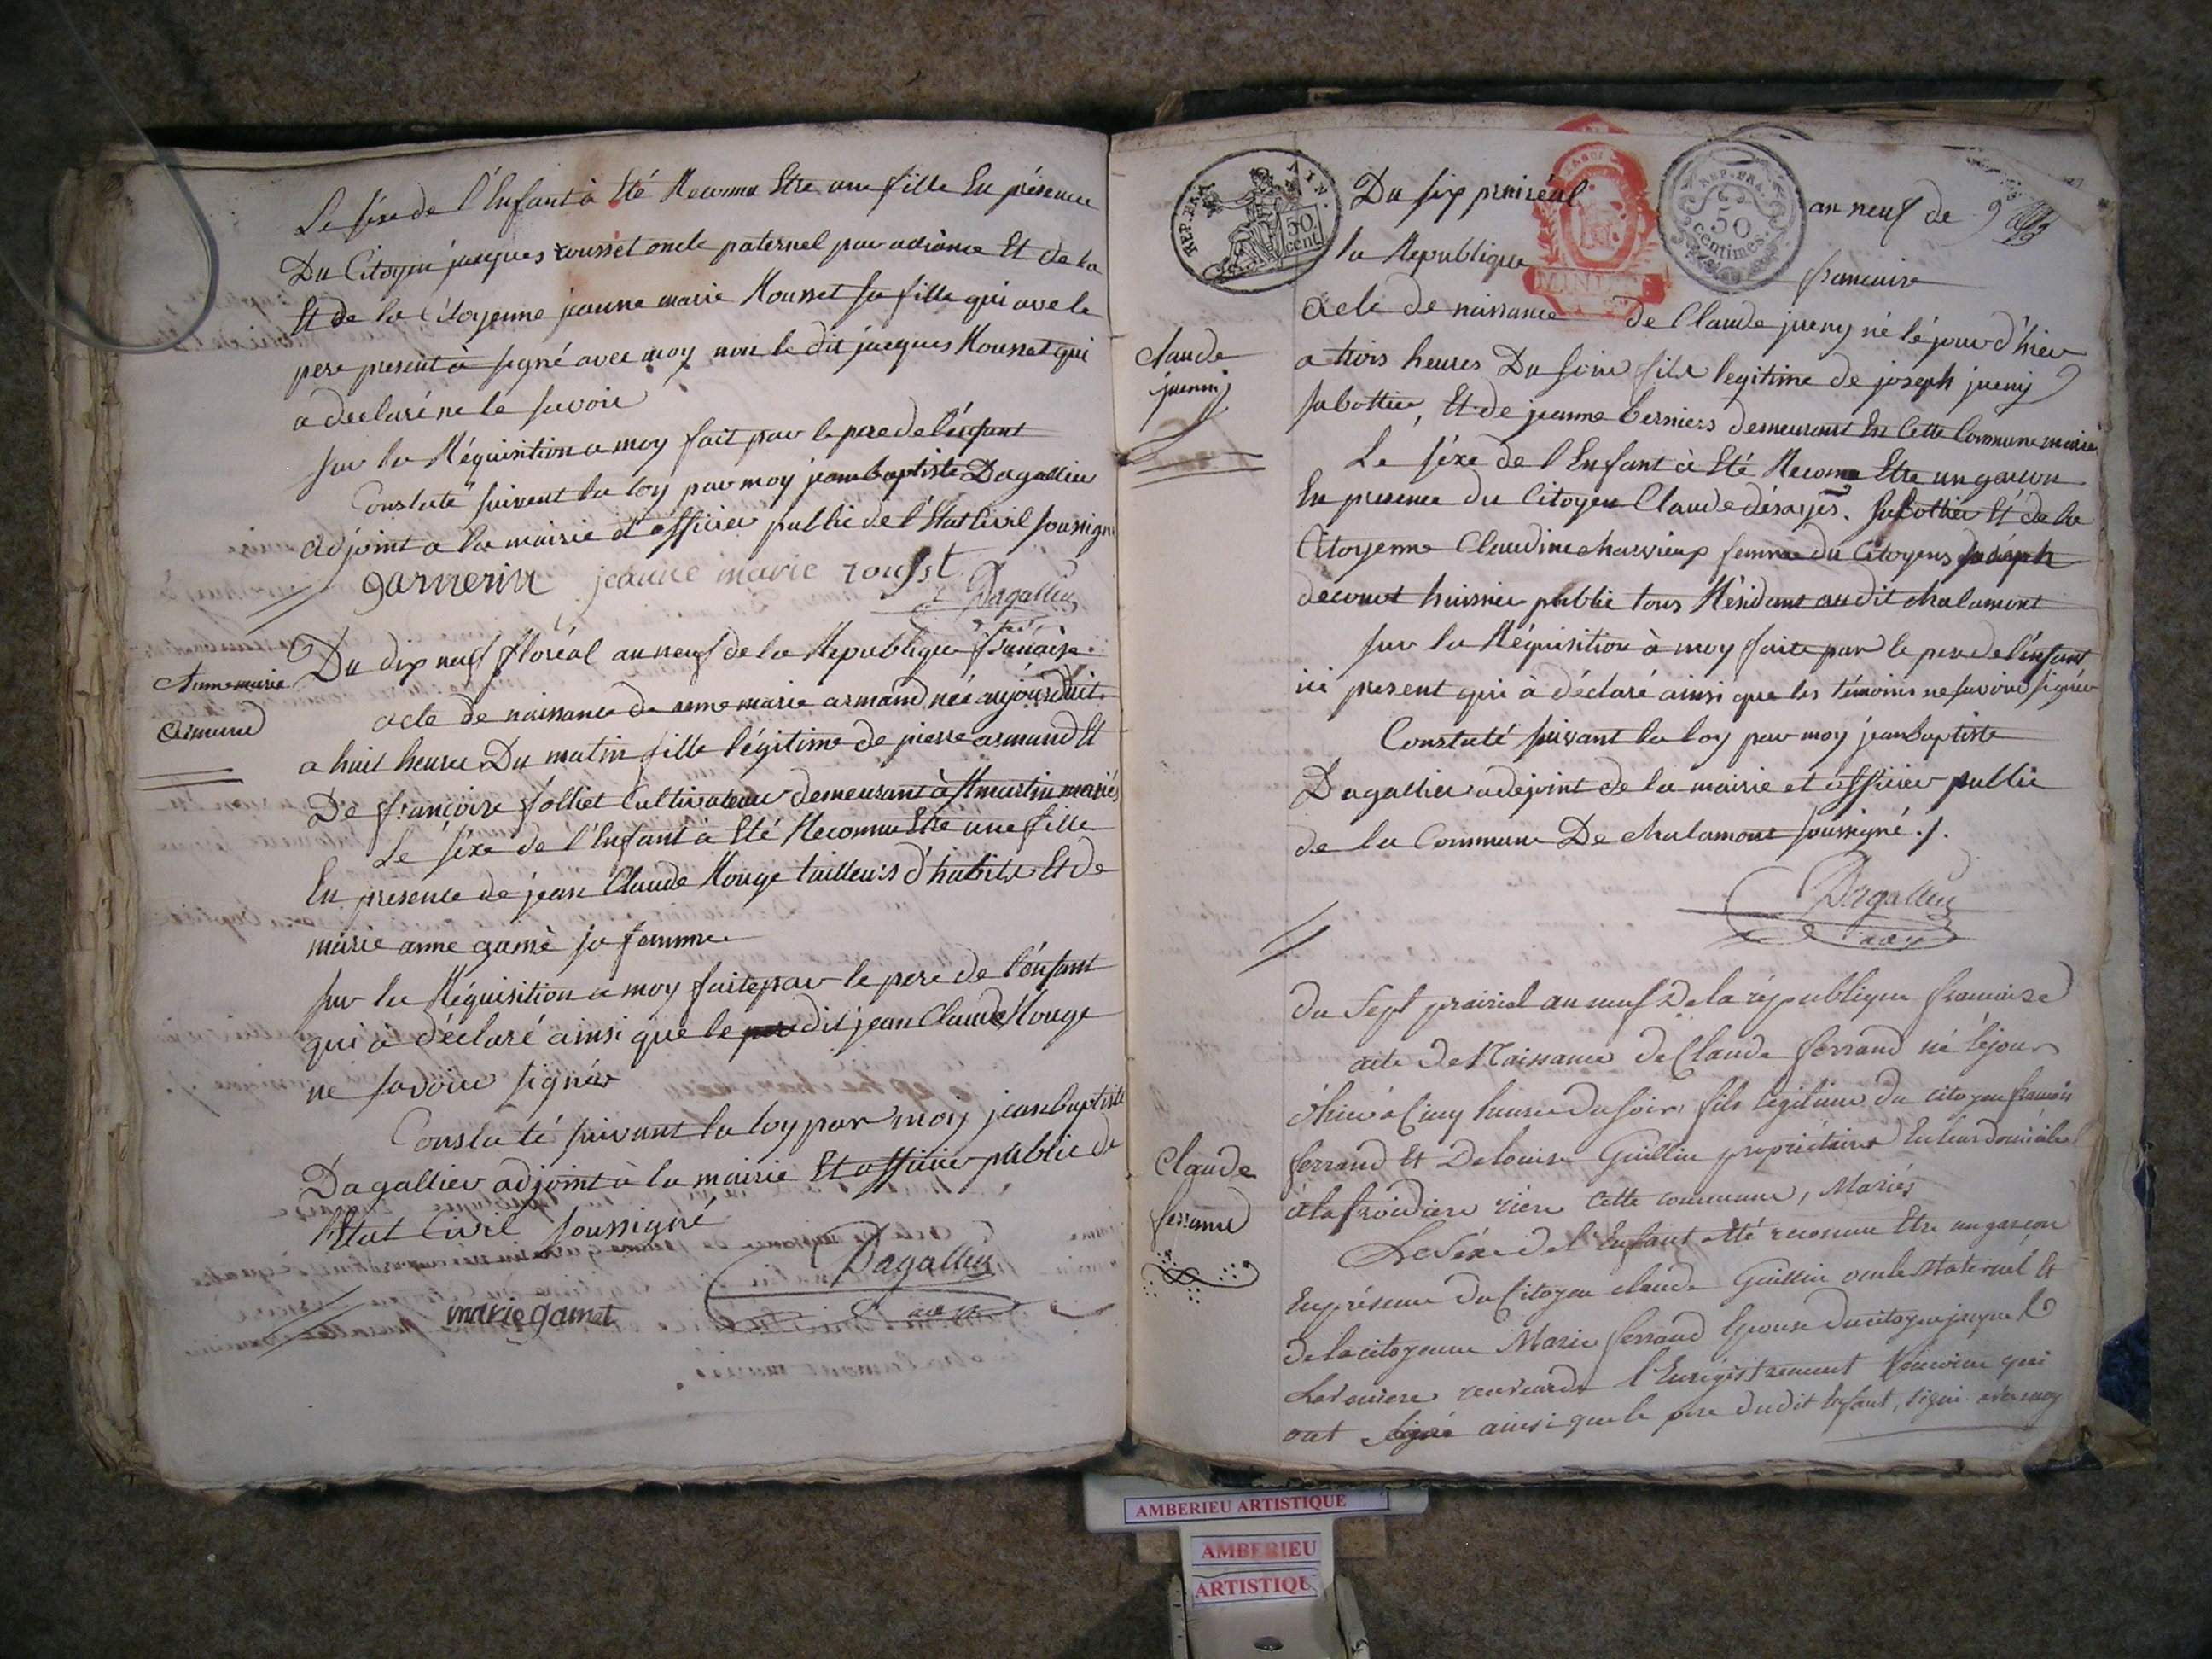 Le séxe de l'Enfant à Eté Reconnu Etre une fille En présence
Du Citoyen jacques rousset oncle paternel par aliance Et de la
Et de la Citoyenne jeanne marie Rousset sa fille qui avec le
pere present à signé avec moy non le dit jacques Rousset qui
a declaré ne le savoir
sur la Réquisition a moy fait par le pere de l'énfant
Constaté suivent la loy par moy jean baptiste Dagallier
adjoint a la mairie d'officier public de l'Etat Civil soussigné
garnerin jeanne marie rousst
Dagallier
Anne marie
Armand
Du dix neuf floréal an neuf de la Republique française
acte de naissance de anne marie armand née aujourd'huit
a huit heures Du matin fille légitime de pierre armand Et
De françoise folliet Cultivateur demeurant à St martin mariés
Le séxe de l'Enfant à Eté Reconnu Etre une fille
En presence de jean Claude Rouge tailleurs d'habits Et de
marie anne gamé sa femme
sur la Réquisition a moy faite par le pere de l'énfant
qui a déclaré ainsi que le dit jean Claude Rouge
ne savoir signér
Constaté suivant la loy par moy jean baptiste
Dagallier adjoint à la mairie Et officier public de
l'Etat Civil soussigné
Dagallier
marie gamet
REP. FRA.
50
cent
REP. FRA.
50
centimes.
Du six prairéal an neuf de
la Republique francaise
Claude
juenin
acte de naissance de Claude jueny né lé jour d'hier
a trois heures Du soir fils legitime de joseph jueny
sabottier, Et de jeanne berniers demeurant En Cette Commune mariés
Le séxe de l'Enfant à Eté Reconu Etre un garcon
En presence du Citoyen Claude désarjes. sabottier Et de la
Citoyenne Claudine charvieux femme du Citoyens joséph
decourt huissier public tous Résidant au dit chalamont
sur la Réquisition à moy faite par le pere de l'énfant
ici present qui à déclaré ainsi que les témoins ne savoir signér
Constaté suivant la loy par moy jean baptiste
Dagallier adejoint de la mairie et officier public
de la Commune De chalamont soussigné ./.
Dagallier
du Sept prairial an neuf De la république francaise
acte De Naissance De Claude ferrand né le jour
Claude
ferrand
d'hier à Cinq heures du soir, fils légitime du citoyen francois
ferrand Et De louise Guillin propriétaires En leur domicile
à la froidiere rière Cette commune, Mariés
Le Séxe de l'Enfant a été reconnu Etre un garcon
En présence Du Citoyen claude Guillin oncle Maternel Et
de la citoyenne Marie ferrand Epouse du citoyen jacques
l'Enregistrement qui
ont signé ainsi que le pere dudit Enfant, signé avec moy
AMBERIEU ARTISTIQUE
AMBERIEU
ARTISTIQU